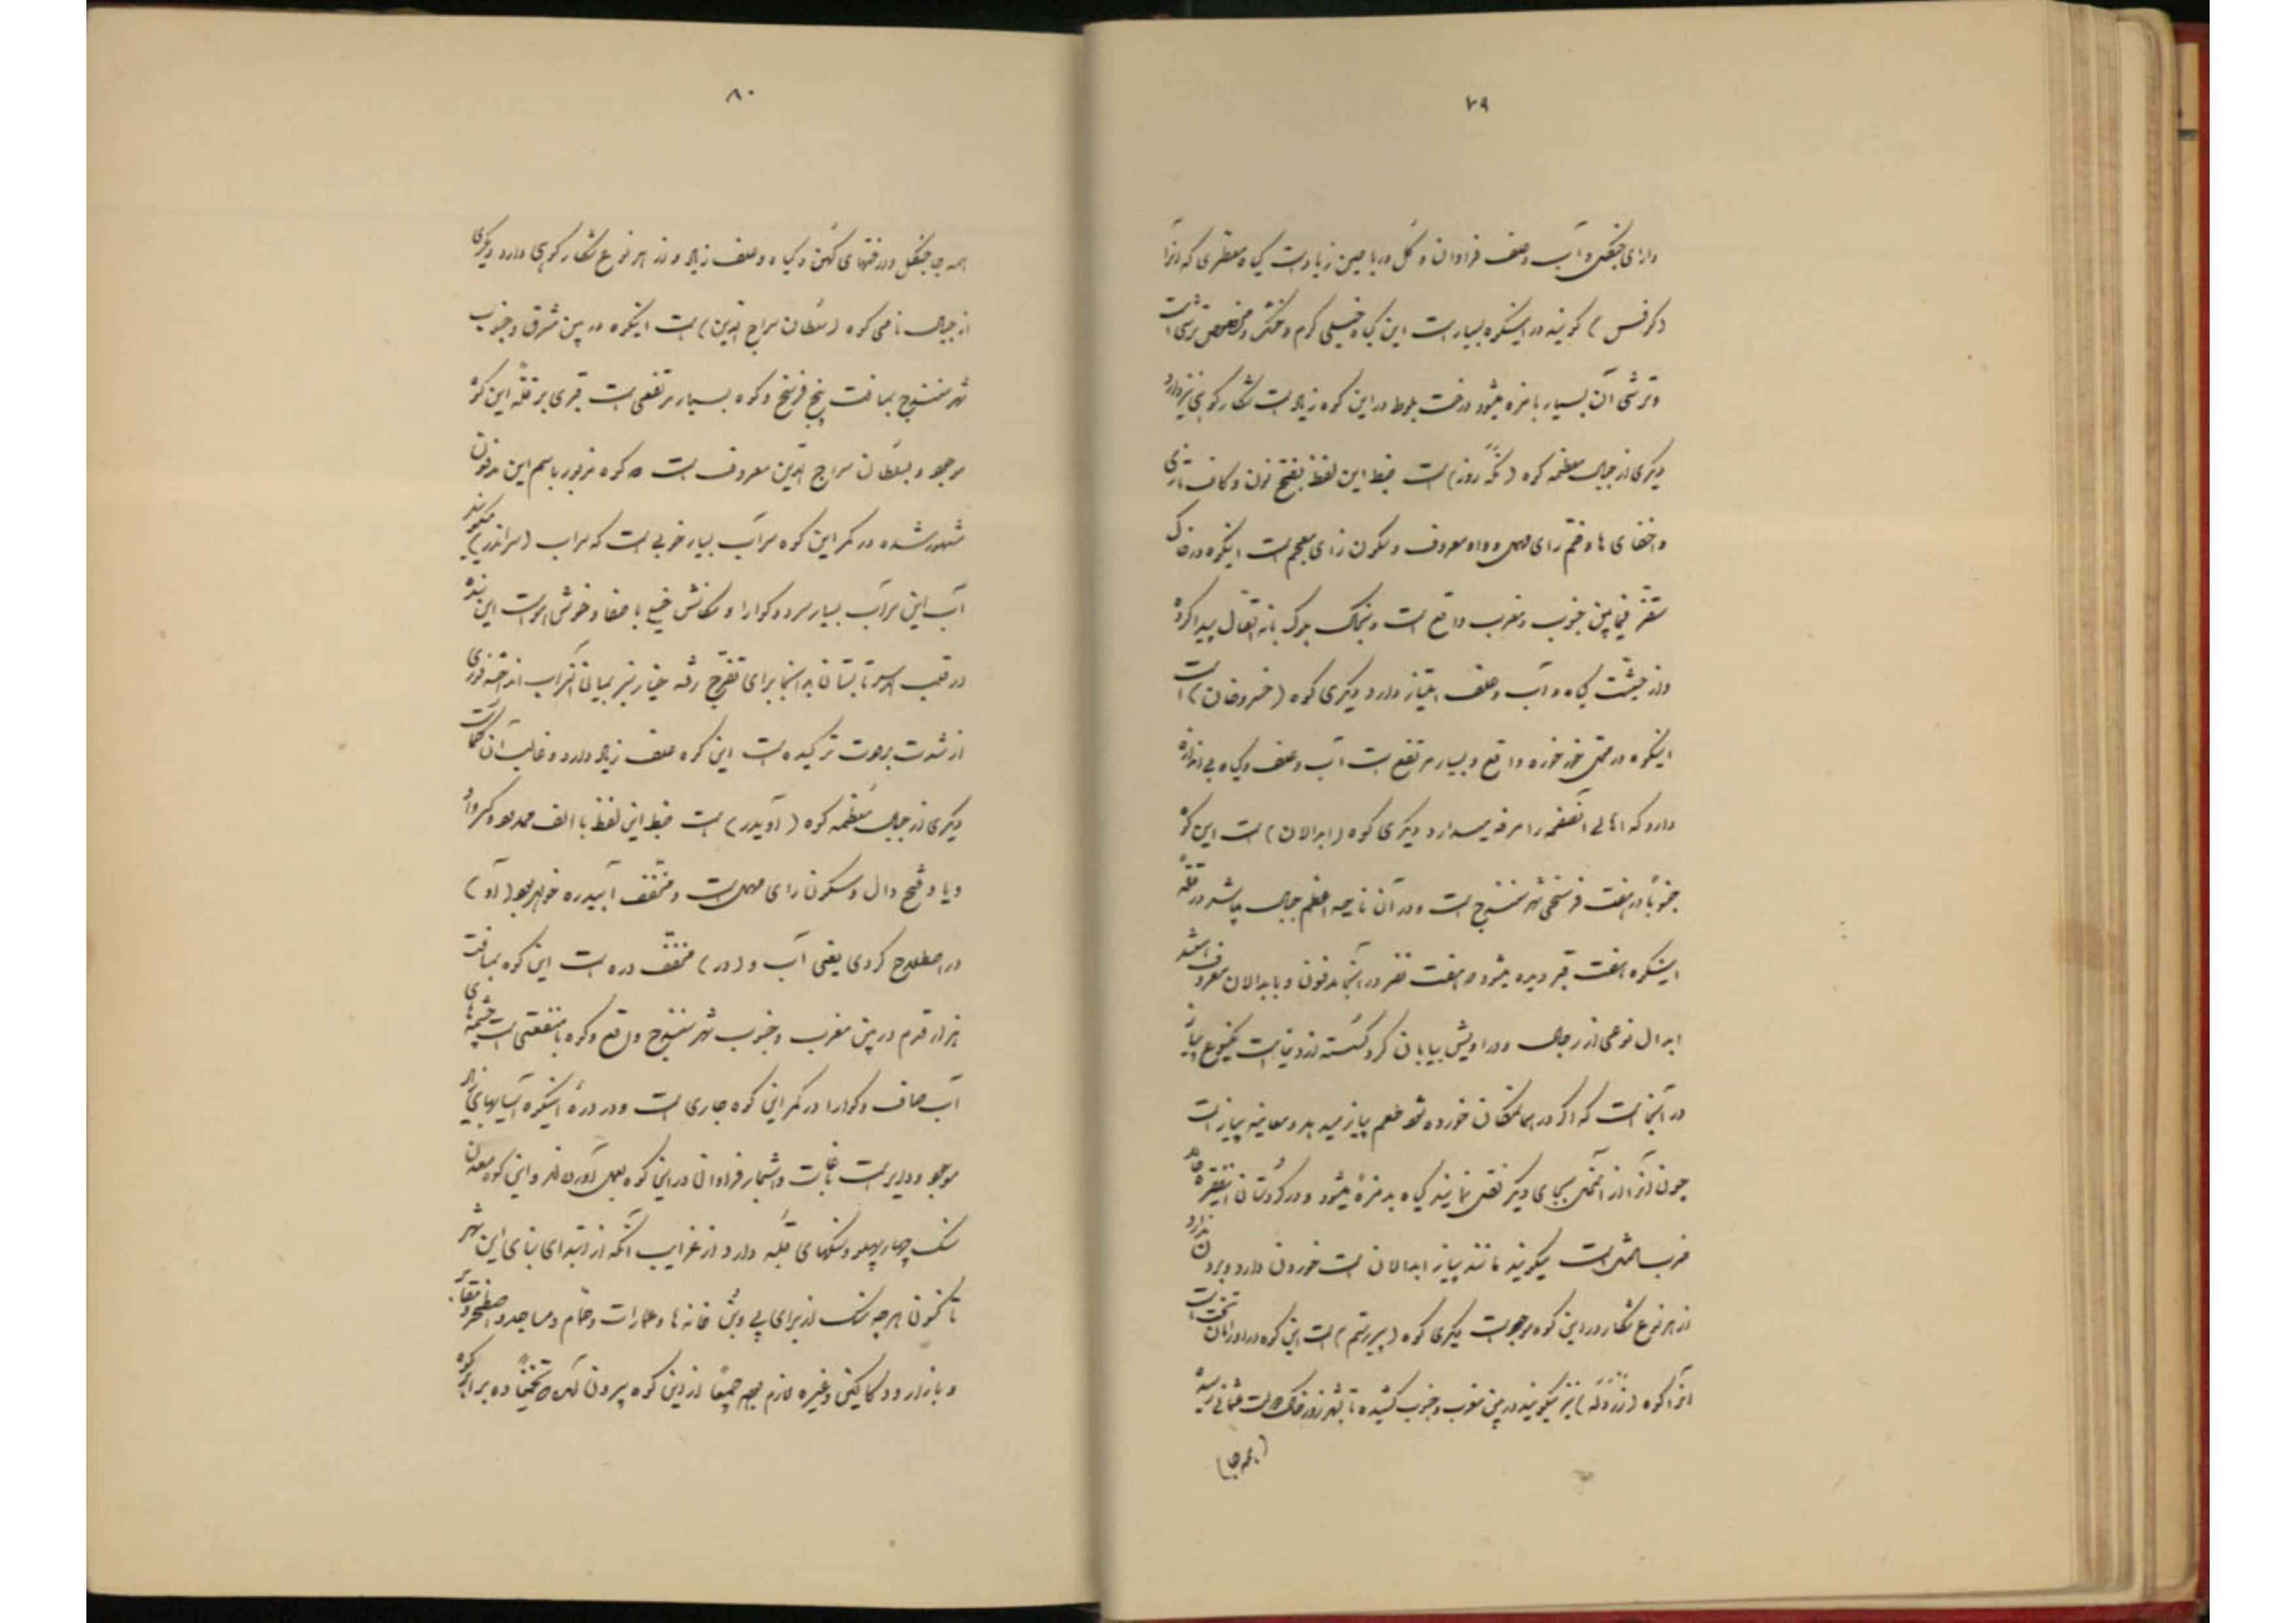 ۷۹
دارای جنگل و آب و علف فراوان و گل و ریاحین زیاد است گیاه معطری که آنرا
(کرفس) گویند در اینکوه بسیار است این گیاه خیلی گرم و خشک و مخصوص ترشی است
و ترشی آن بسیار با مزه میشود درخت بلوط در این کوه زیاد است شکار کوهی نیز دارد
دیگری از جبال معظمه کوه (نکه روز) است ضبط این لفظ بفتح نون و کاف تازی
و اخفای ها و ضم رای مهمل و واو معروف و سکون زای معجم است اینکوه در خاک
سقز فیمابین جنوب و مغرب واقع است و بخاک بلوک بانه اتصال پیدا کرده
و از حیثیت گیاه و آب و علف امتیاز دارد دیگری کوه (خسروخان) است
اینکوه در محل خورخوره واقع و بسیار مرتفع است آب و علف و گیاه بی اندازه
دارد که اهالی آنصفحه را مرفه میدارد دیگری کوه (ابدالان) است این کوه
جنوباً در هفت فرسخی شهر سنندج است و در آن ناحیه اعظم جبال میباشد در قله
اینکوه هفت قبر دیده میشود که هفت نفر در آنجا مدفون و بابدالان معروف استند
ابدال نوعی از رجال و دراویش بیابان گرد گسسته از دنیاست یکنوع پیاز
در آنجاست که اگر در همانمکان خورده شود طعم پیاز میدهد و معاینه پیاز است
چون آنرا از آنمحل بجای دیگر نقل نمایند گیاه بدمزهٔ میشود و در کردستان اینفقره
ضرب المثل است میگویند مانند پیاز ابدالان است خوردن دارد و بردن ندارد
از هر نوع شکار در این کوه موجود است دیگری کوه (پیر رستم) است این کوه در اورامان تخت است
آنرا کوه (زردله) نیز میگویند در بین مغرب و جنوب کشیده تا بشهر زور خاک دولت عثمانی رسیده
(همه جا)
۸۰
همه جا جنگل و درختهای کهن و گیاه و علف زیاد و از هر نوع شکار کوهی دارد دیگری
از جبال نامی کوه (سلطان سراج الدین) است اینکوه در بین مشرق و جنوب
شهر سنندج بمسافت پنج فرسخ و کوه بسیار مرتفعی است قبری بر قلهٔ این کوه
موجود و بسلطان سراج الدین معروف است که کوه مزبور باسم این مدفون
مشهور شده در کمر این کوه سراب بسیار خوبی است که سراب (سراندر) میگویند
آب این سراب بسیار سرد و گوارا و مکانش خیلی با صفا و خوش هواست این بنده
در قلب الاسد تابستان در آنجا برای تفرج رفته خیار سبز بمیان آنسراب انداخته فوری
از شدت برودت ترکیده است این کوه علف زیاد دارد و غالب آن کما است
دیگری از جبال معظمه کوه (آویدر) است ضبط این لفظ با الف ممدوده و کسر واو
و یا و فتح دال و سکون رای مهمل است و مخفف آبیدره خواهد بود (آو)
در اصطلاح کردی یعنی آب و (در) مخفف دره است این کوه بمسافت
هزار قدم در بین مغرب و جنوب شهر سنندج واقع و کوه با منفعتی است چشمه های
آب صاف و گوارا در کمر این کوه جاری است و در درهٔ اینکوه آسیابهای زیاد
موجود و دایر است باغات و اشجار فراوانی در این کوه بعمل آورده اند و این کوه معدن
سنگ چهار پهلو و سنگهای قله دارد از غرایب آنکه از ابتدای بنای این شهر
تا کنون هر چه سنگ از برای پی و پش خانه ها و عمارات و حمام و مساجد و اصطخر و مقابر
و بازار و دکاکین و غیره لازم بوده جمیعاً از این کوه بیرون آمده که تخمیناً ده برابر کوه